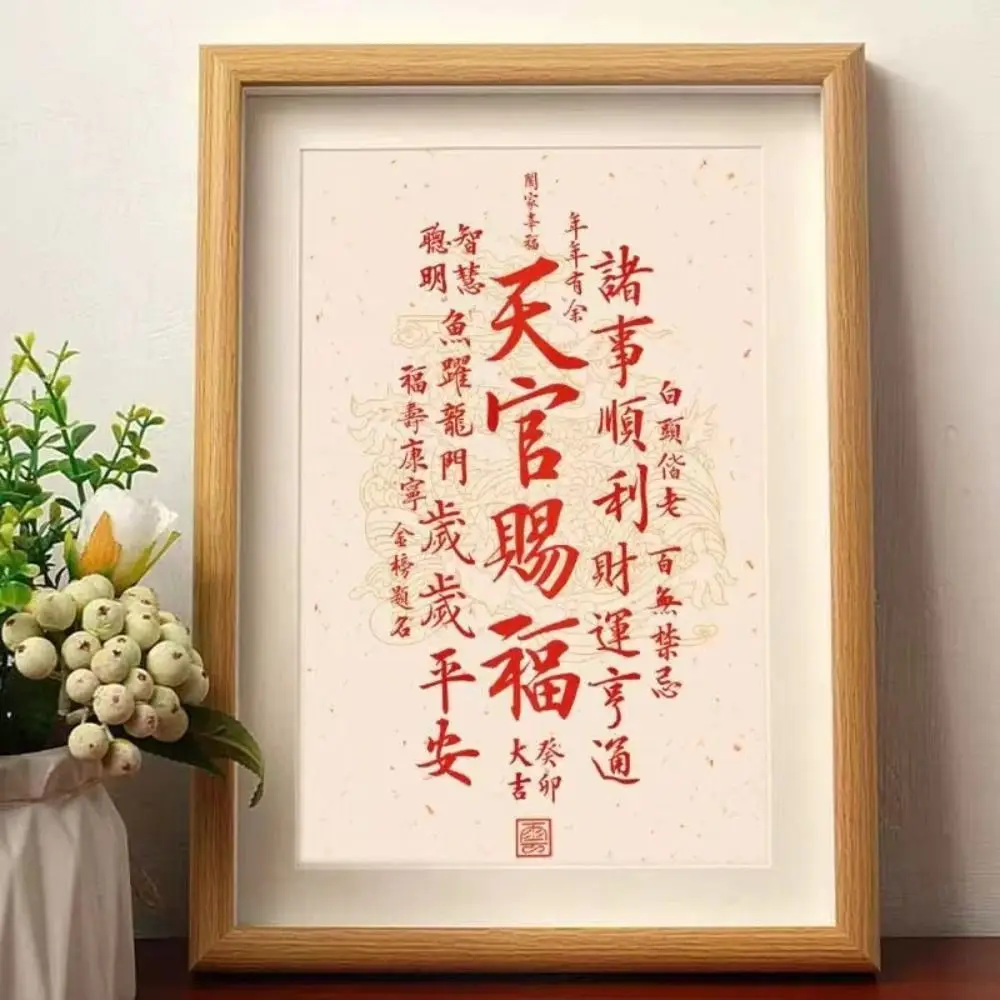 白頭偕老
百無禁忌
諸事順利
財運亨通
年年有余
闔家幸福
天官賜福
癸卯
大吉
智慧
聰明
魚躍龍門
歲歲平安
福壽康寧
金榜題名